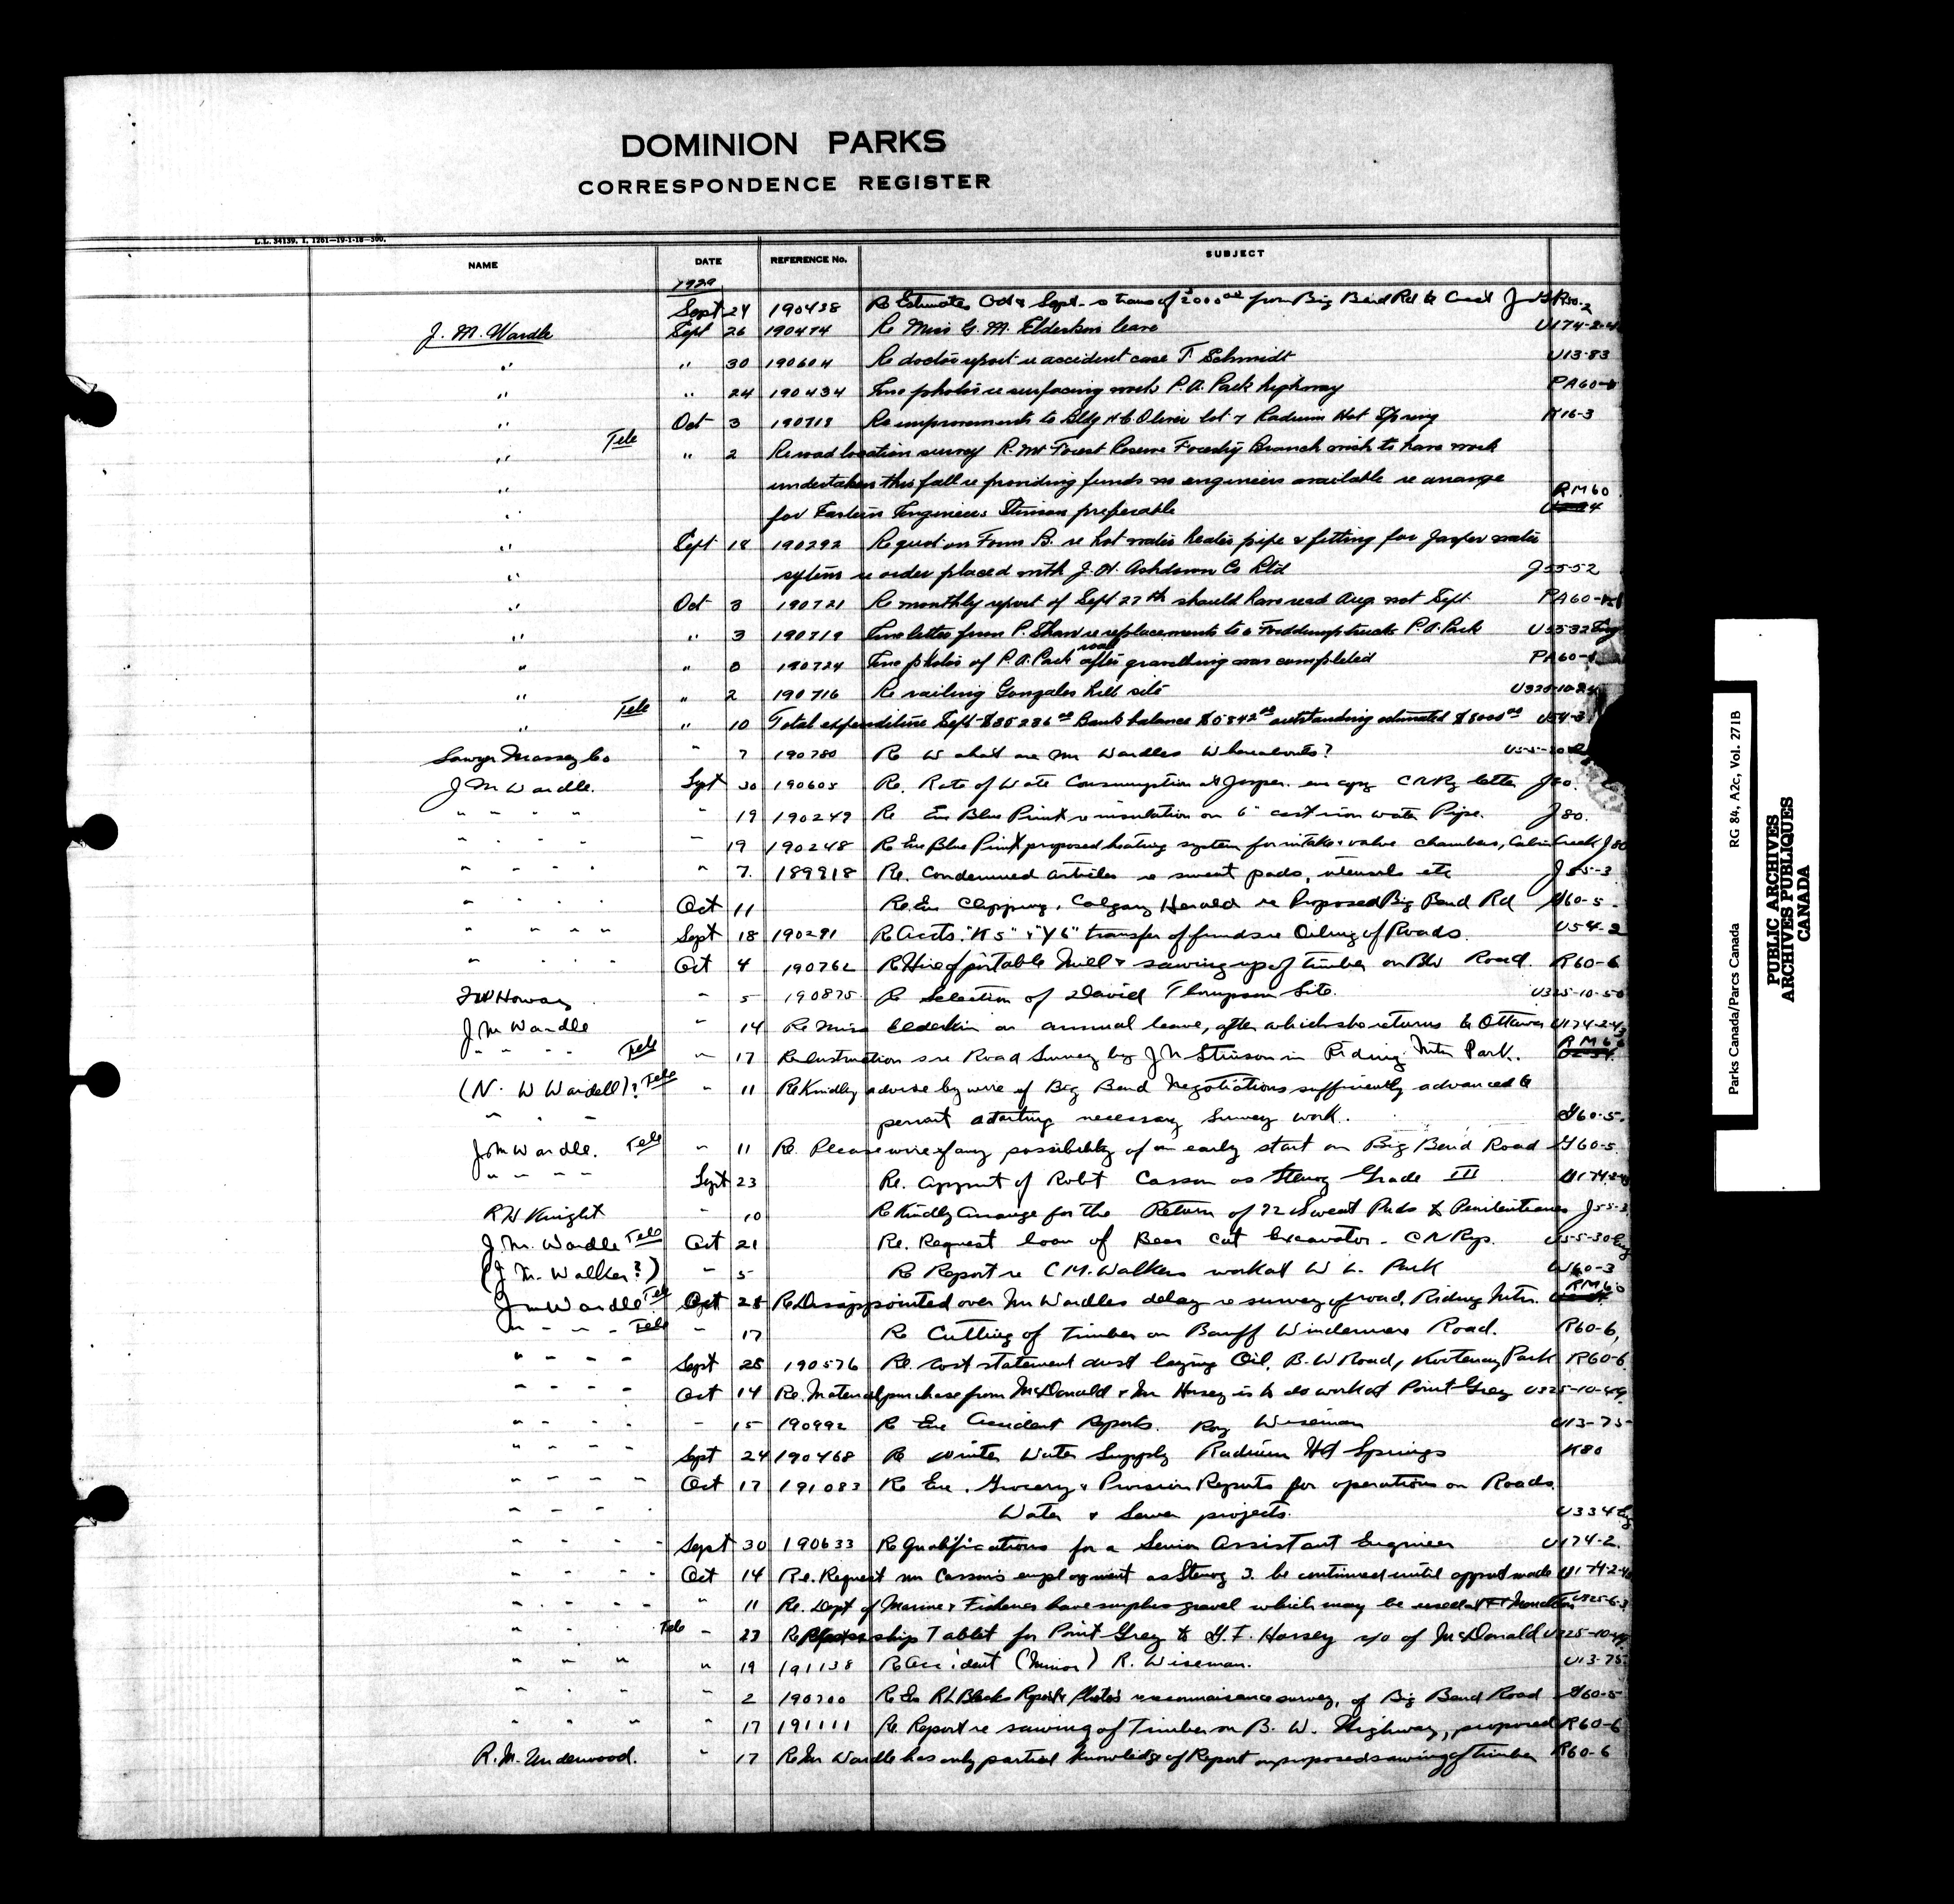 DOMINION PARKS
CORRESPONDENCE REGISTER
L.L. 34139. I. 1261—19-1-18—500.
NAME DATE REFERENCE No. SUBJECT
1929
Sept 24 190438 Re Estimates Oct & Sept. from Big Bend Rd to
J. M. Wardle Sept 26 190474 Re Miss G. M. Elderkin leave U174-2-4
" " 30 190604 Re doctor report re accident case T Schmidt U13-83
" " 24 190434 Enc photos re surfacing work P.A. Park highway PA60-
" Oct 3 190718 Re improvements to Bldg H.C. Oliver lot 7 Radium Hot Spring K16-3
" Tele " 2 Re road location survey R. Mt Forest Reserve Forestry Branch wish to have work
" undertaken this fall re providing funds no engineers available re arrange
" for Eastern Engineers Stinson preferable RM60
" Sept 18 190292 Re quot on Form B. re hot water heater pipe & fitting for Jasper water
" system re order placed with J. H. Ashdown Co Ltd J55-52
" Oct 3 190721 Re monthly report of Sept 27th should have read Aug not Sept PA60-
" " 3 190719 Enc letter from P. Shaw re replacements to 6 Ford dump trucks P.A. Park U55-32 Eng
" " 3 190724 Enc photos of P.A. Park road after gravelling was completed PA60-
" " 2 190716 Re railing Gonzales hill site U325-10-
" Tele " 10 Total expenditure Sept $35236 Bank balance $5842 outstanding estimated $8000 U54-3
Sawyer Massey Co " 7 190780 Re What are Mr Wardles Whereabouts? U55-30
J M Wardle. Sept 30 190605 Re. Rate of Water Consumption at Jasper. enc copy CNRy letter J80.
" " " " " 19 190249 Re Enc Blue Print re insulation on 6" cast iron water Pipe. J80.
" " " " " 19 190248 Re Enc Blue Print proposed heating system for intake & valve chambers, Cabin Creek J80
" " " " " 7. 189818 Re. Condemned articles re sweat pads, utensils etc J55-3
" " " " Oct 11 Re. Enc Clipping, Calgary Herald re Proposed Big Bend Rd G60-5.
" " " " Sept 18 190291 Re Accts. "K5" & "Y6" transfer of funds re Oiling of Roads. U54-2
" " " " Oct 4 190762 Re Hire of portable Mill & sawing up of timber on BW Road. R60-6
FW Howay " 5 190875 Re Selection of David Thompson Site. U325-10-50
J M Wardle " 14 Re Miss Elderkin on annual leave, after which she returns to Ottawa U174-2-43
" " " " Tele " 17 Re Instructions re Road Survey by J N Stinson in Riding Mtn Park. RM60
(N. W Wardell)? Tele " 11 Re Kindly advise by wire if Big Bend Negotiations sufficiently advanced to
" " " permit starting necessary Survey work. G60-5.
J M Wardle. Tele " 11 Re. Please wire if any possibility of an early start on Big Bend Road G60-5.
" " " " Sept 23 Re. Appmt of Robt Casson as Stenog Grade III U174-2-
R H Knight " 10 Re Kindly Arrange for the Return of 72 Sweat Pads to Penitentiaries J55-3
J. M. Wardle Tele Oct 21 Re. Request loan of Bear Cat Excavator - CN Rys. U55-30 Eng
(J M. Walker?) " 5 Re Report re C M. Walkers work at W L. Park W60-3
J M Wardle Tele Oct 28 Re Disappointed over Mr Wardles delay re survey of road, Riding Mtn. RM60
" " " " Tele " 17 Re Cutting of Timber on Banff Windermere Road. R60-6,
" " " " Sept 28 190576 Re. Cost statement dust laying Oil, B. W Road, Kootenay Park R60-6.
" " " " Oct 14 Re. Material purchase from McDonald & Mr Horsey is to do work at Point Grey U325-10-49.
" " " " " 15 190992 Re Enc Accident Reports. Roy Wiseman U13-75
" " " " Sept 24 190468 Re Winter Water Supply Radium Hot Springs K80
" " " " Oct 17 191083 Re Enc. Grocery & Provision Reports for operations on Roads.
" " " " Water & Sewer projects. U334 Eng
" " " " Sept 30 190633 Re Qualifications for a Senior Assistant Engineer U174-2.
" " " " Oct 14 Re. Request Mr Cassons employment as Stenog 3. be continued until appmt made U174-2-
" " " " " 11 Re. Dept of Marine & Fisheries have surplus gravel which may be used at Ft U325-6-3
" " Tele " 23 Re ship Tablet for Point Grey to G. F. Horsey c/o of McDonald U325-10-49
" " " " 19 191138 Re Accident (Minor) R. Wiseman. U13-75.
" " " " 2 190700 Re Enc R L Blacks Report & Photos reconnaisance survey, of Big Bend Road G60-5
" " " " 17 191111 Re Report re sawing of Timber on B. W. Highway, proposed R60-6
R. M. Underwood. " 17 Re Mr Wardle has only partial knowledge of Report on proposed sawing of timber R60-6
Parks Canada/Parcs Canada RG 84, A2c, Vol. 271B
PUBLIC ARCHIVES
ARCHIVES PUBLIQUES
CANADA